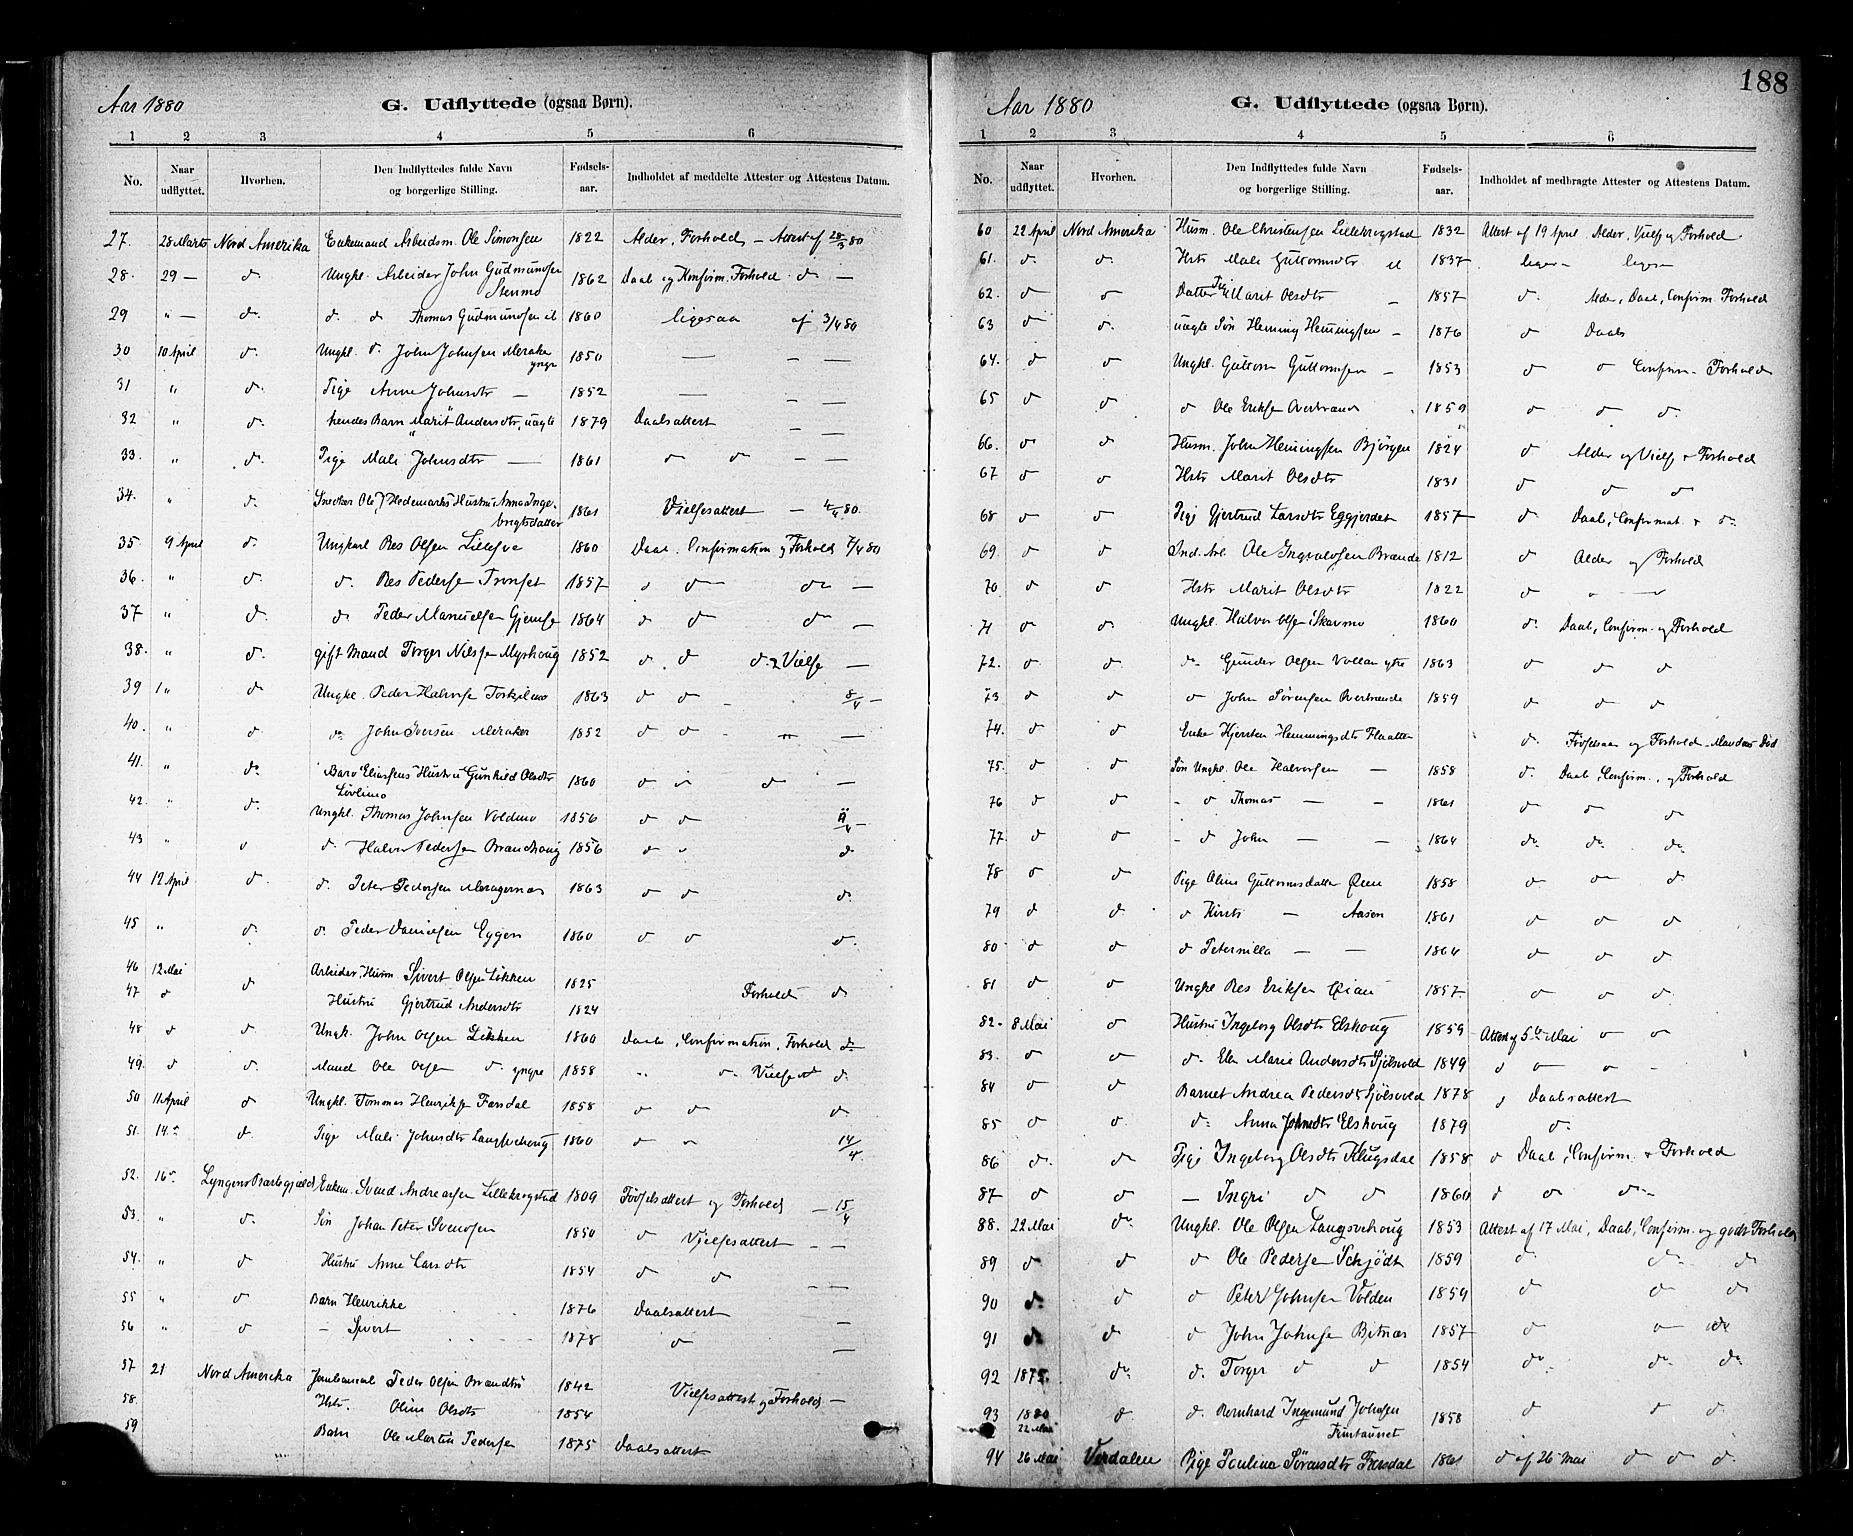 188
Aar 1880 G. Udflyttede (ogsaa Børn).
1 2 3 4 5 6
No. Naar udflyttet. Hvorhen. Den Indflyttedes fulde Navn og borgerlige Stilling. Fødsels-aar. Indholdet af meddelte Attester og Attestens Datum.
27. 28 Marts Nord Amerika Enkemand Arbeidsm. Ole Simonsen 1822 Alder, Forhold – Attest af 28/3 80
28. 29 — d. Ungkl. Arbeider John Gudmundsen Stenmo 1862 Daab og Konfirm. Forhold d. —
29 " — d. d. d Thomas Gudmundsen 1860 ligesaa af 3/4 80
30 10 April d. Ungkl. d. John Johnsen Meraker yngr 1850 — – —
31 " d. Pige Anne Johnsdtr — 1852 — – —
32 " d. hendes Barn Marit Andersdtr, uægte 1879 Daabsattest – —
33. " d. Pige Mali Johnsdtr — 1861 d d – —
34. " d. Snedker Ole Hedemarks Hustru Anna Ingebrigtsdatter 1861 Vielsesattest – 4/4 80
35. 9 April d. Ungkarl Pes Olsen Lillefve 1860 Daab. Confirmation og Forhold 7/4 80
36. " d. d. Pes Pedersen Tronset 1857 d d d —
37 " d. d. Peder Manuelsen Gjemse 1864 d d d —
38. " d. gift Mand Torger Nilssen Myrhoug 1852 d. d d. & Vielse —
39 1 " d Ungkl. Peder Halvorsen Torkilmo 1863 d d – 8/4 –
40. " d d. John Iversen Meraker 1852 d d - " —
41. " d. Baro Eliassens Hustru Gunhild Olsdtr Løvlimo 1860 d " d —
42. " d. Ungkl. Thomas Johnsen Voldmo 1856 d d 11/4 –
43 " d d. Halvor Pedersen Brændhoug 1856 d " d
44 12 April d. d. Peter Pedersen Meragernæs 1863 d d d.
45 " d. d. Peder Danielsen Eggen 1860 d d d.
46 12 Mai d Arbeider, Husm. Sivert Olsen Løkken 1825
47 d Hustru Gjertrud Andersdtr 1824 Forhold d
48 d d Ungk. John Olsen Løkken 1860 Daab, Confirmation, Forhold d
49. d d. Mand Ole Olsen d. yngre 1858 " d. Vielse d d
50 11 April d Ungkl. Tommas Henriksen Færsdal 1858 d d d
51. 14 " d. Pige Mali Johnsdtr Langsvehoug 1860 d " 14/4
52. 16 " Lyngens Præstegjæld Enkem. Svend Andreassen Lillekrogstad 1809 Fødselsattest og Forhold – 15/4
53. " d. Søn Johan Peter Svendsen 1850 d Vjelsesattest – –
54. " d Hustru Anne Larsdtr 1854 d d – —
55 " d Barn Henrikke 1876 Daabsattest —
56 " d – Sivert 1878 d —
57 21 Nord Amerika Peder Olsen Brændtrø 1842
58. Hstr. Oline Olsdtr 1854 Vielsesattest og Forhold —
59 Barn Ole Martin Pedersen 1875 Daabsattest
Aar 1880 G. Udflyttede (ogsaa Børn).
1 2 3 4 5 6
No. Naar udflyttet. Hvorhen. Den Indflyttedes fulde Navn og borgerlige Stilling. Fødsels-aar. Indholdet af medbragte Attester og Attestens Datum.
60 22 April Nord Amerika Husm. Ole Christensen Lillekrogstad 1832 Attest af 19 April Alder, Vjelse og Forhold
61. d. d. Hstr Mali Guttormsdtr 1837 liges – liges –
62. d d Datter Pige Marit Olsdtr – 1857 d. Alder, Daab, Confirm. Forhold
63 d d. uægte Søn Heming Hemingsen – 1876 d Daabs
64. d d Ungkl. Guttorm Guttormsen – 1853 d d Confirm. Forhold
65 d d d Ole Eriksen Overbrænde 1859 d d d.
66. d d Husm. John Hemingsen Bjørgen 1824 d Alder og Vielse & Forhold
67 d d Hstr Marit Olsdtr 1831 d d d
68 d d Pige Gjertrud Larsdtr Eggjerdet 1857 d. Daab, Confirmat. & d.
69. d d Ind. Arb. Ole Ingvaldsen Brænde 1812 d Alder og Forhold
70 d d Hstr Marit Olsdtr 1822 d " — d
71 d d. Ungkl. Halvor Olsen Skavmo 1860 d. Daab, Confirm. og Forhold
72. d d. d. Gunder Olsen Vollan ytre 1863 d d d
73 d d d John Sørensen Overbrænde 1859 d d d
74. d d Enke Kjersten Hemmingsdtr Flaatten d. Fødselsaar og Forhold – Mandens Død
75. d d Søn Ungkl. Ole Halvorsen — 1858 d. Daab, Confirm., og Forhold
76 d d – d Thomas — – 1861 d d d
77. d d – d John — – 1864 d. d. d.
78 d d Pige Oline Guttormsdatter Øien 1858 d d d
79 d d. d Kirsti – Aasen 1861 d d d
80 d d d Peternilla — – 1864 d d d
81 d d Ungkl Pes Eriksen Øian 1857 d d d
82. 8 Mai d Hustru Ingeborg Olsdtr Elshoug 1859 Attest af 5te Mai d d
83. d d d. Marie Andersdtr Sjølsvold 1849 d d d -
84 d d Barnet Andrea Pedersdtr Sjølsvold 1878 d Daabsattest
85 d d. d. Anna Johnsdtr Elshoug 1879 d.
86 d. d Pige Ingeborg Olsdtr Klugsdal 1858 d Daab, Confirm. & Forhold
87 d d — Ingri d d 1860 d d d.
88. 22 Mai d. Ungkl. Ole Olsen Langsvehoug 1853 Attest af 17 Mai, Daab, Confirm. og godt Forhold
89 d d d Ole Pedersen Schjødt 1859 d. d. d
90 d. d d Peter Johnsen Volden 1859 d d d
91 d d d John Johnsen Bitnæs 1857 d d d
92 1875. d. d. Torger d d 1854 d. d. d.
93 1880 22 Mai d d. Bernhard Ingemund Johnsen 1858 d d d
94 26 Mai Verdalen Pige Paulina Sørensdtr Færsdal 1861 d af 26 Mai d d d.